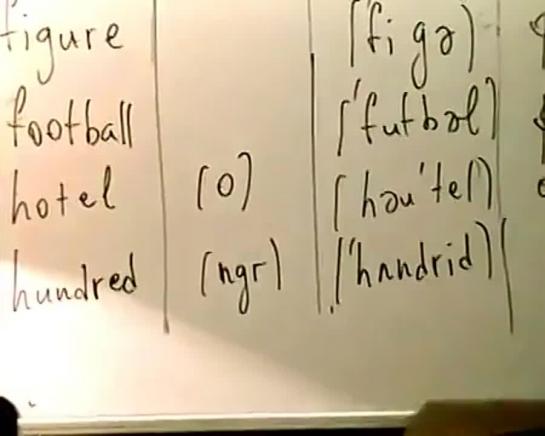 figure ['figə)
football ['futbɔl]
hotel [o] [həu'tel]
hundred (ngr) ['hʌndrid)